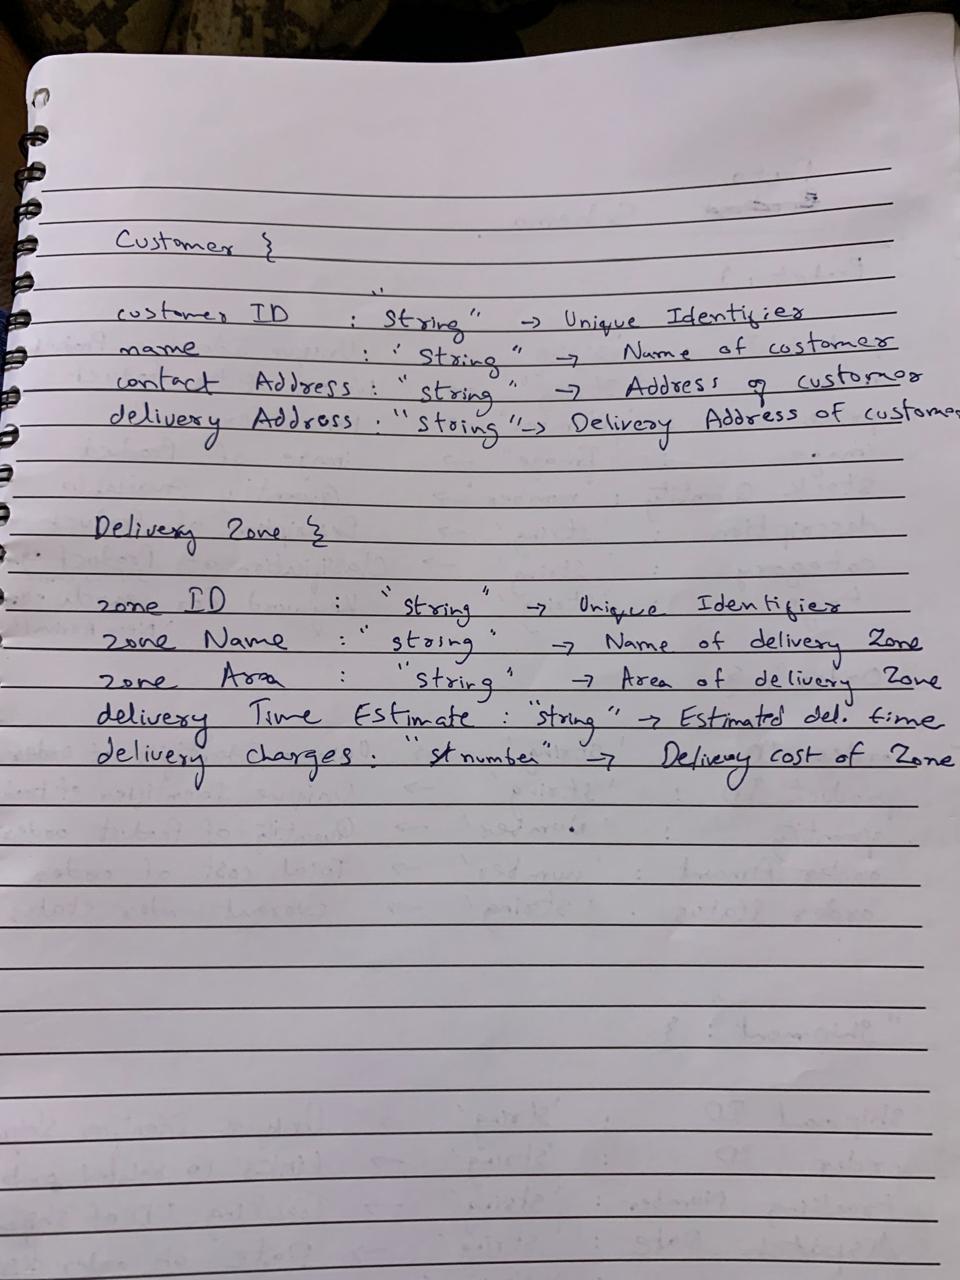 Customer {
customer ID : "String" → Unique Identifier
name : "String" → Name of costomer
contact Address : "string" → Address of customer
delivery Address : "string" → Delivery Address of custome
Delivery Zone {
zone ID : "string" → Unique Identifier
zone Name : "string" → Name of delivery Zone
zone Area : "string" → Area of delivery Zone
delivery Time Estimate : "string" → Estimated del. time
delivery charges : "st number" → Delivery cost of Zone